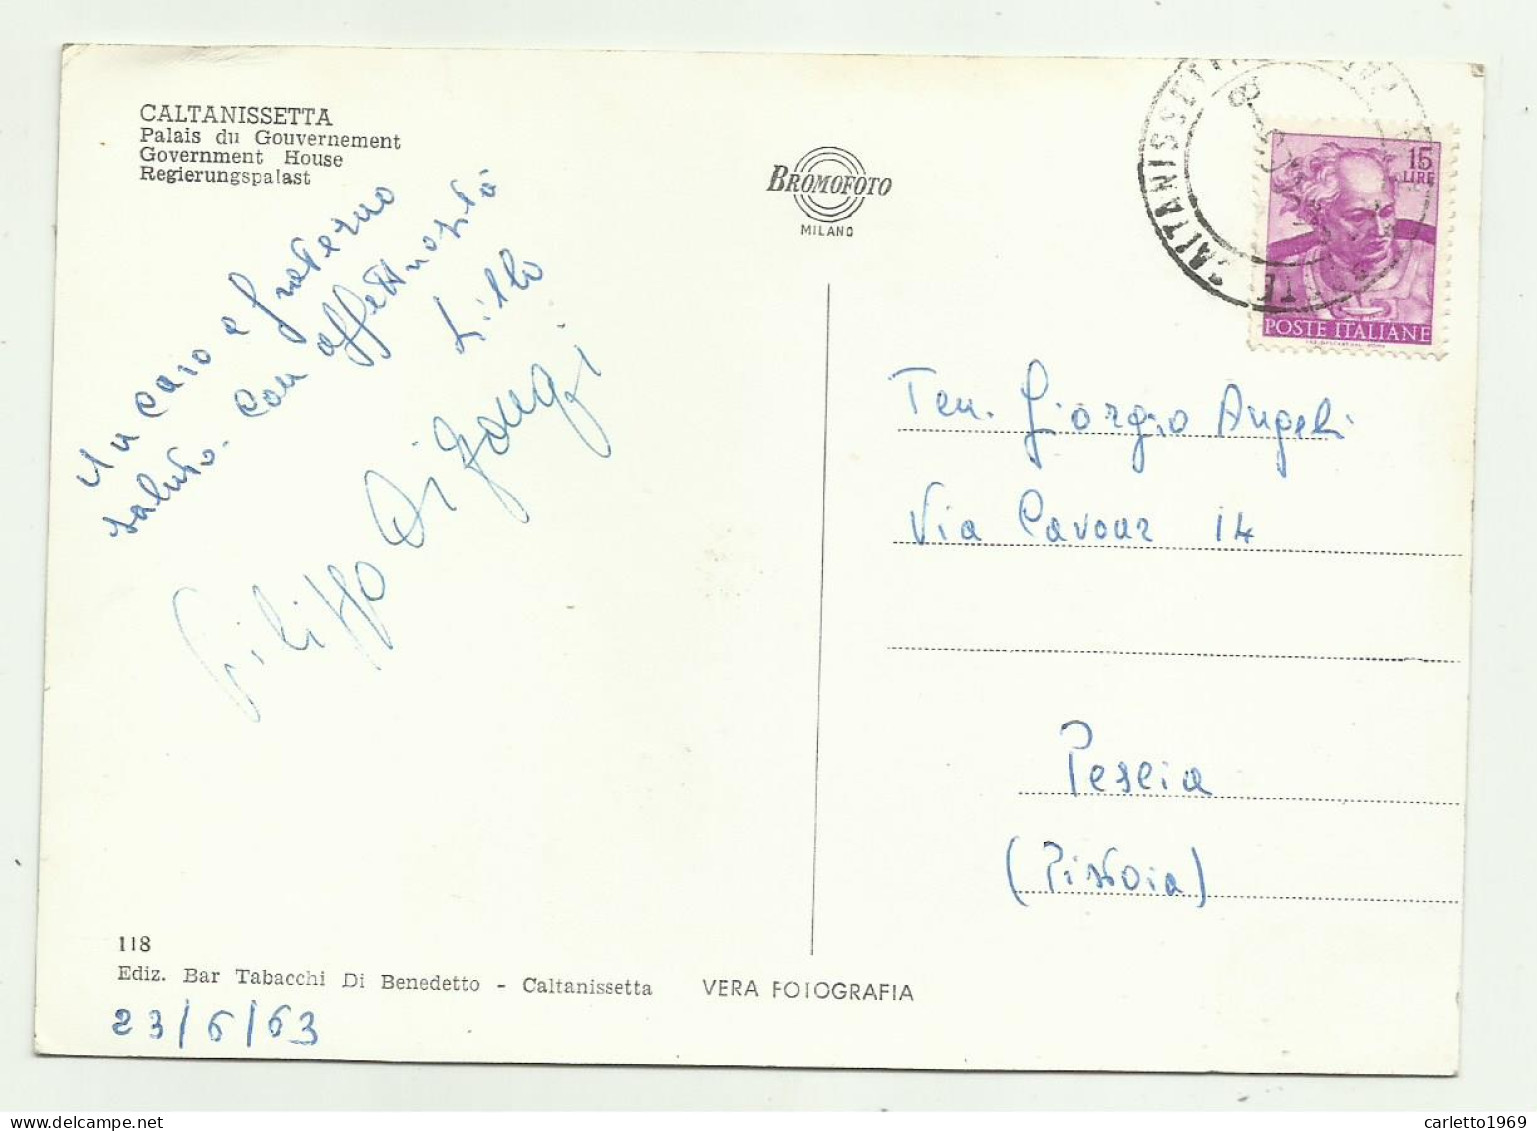 CALTANISSETTA
Palais du Gouvernement
Government House
Regierungspalast
BROMOFOTO
MILANO
15
LIRE
POSTE ITALIANE
Un caro e fraterno
saluto. Con affettuosità
Lillo
Filippo Di
Ten. Giorgio Angeli
Via Cavour 14
Pescia
(Pistoia)
118
Ediz. Bar Tabacchi Di Benedetto - Caltanissetta
VERA FOTOGRAFIA
23/6/63
carletto1969